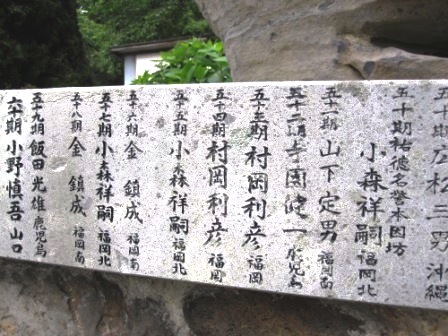 五十期 祐徳名誉本因坊
小森祥嗣 福岡北
五十一期 山下定男 福岡南
五十二期 寺園健一 鹿児島
五十三期 村岡利彦 福岡
五十四期 村岡利彦 福岡
五十五期 小森祥嗣 福岡北
五十六期 金鎮成 福岡南
五十七期 小森祥嗣 福岡北
五十八期 金鎮成 福岡南
五十九期 飯田光雄 鹿児島
六十期 小野慎吾 山口